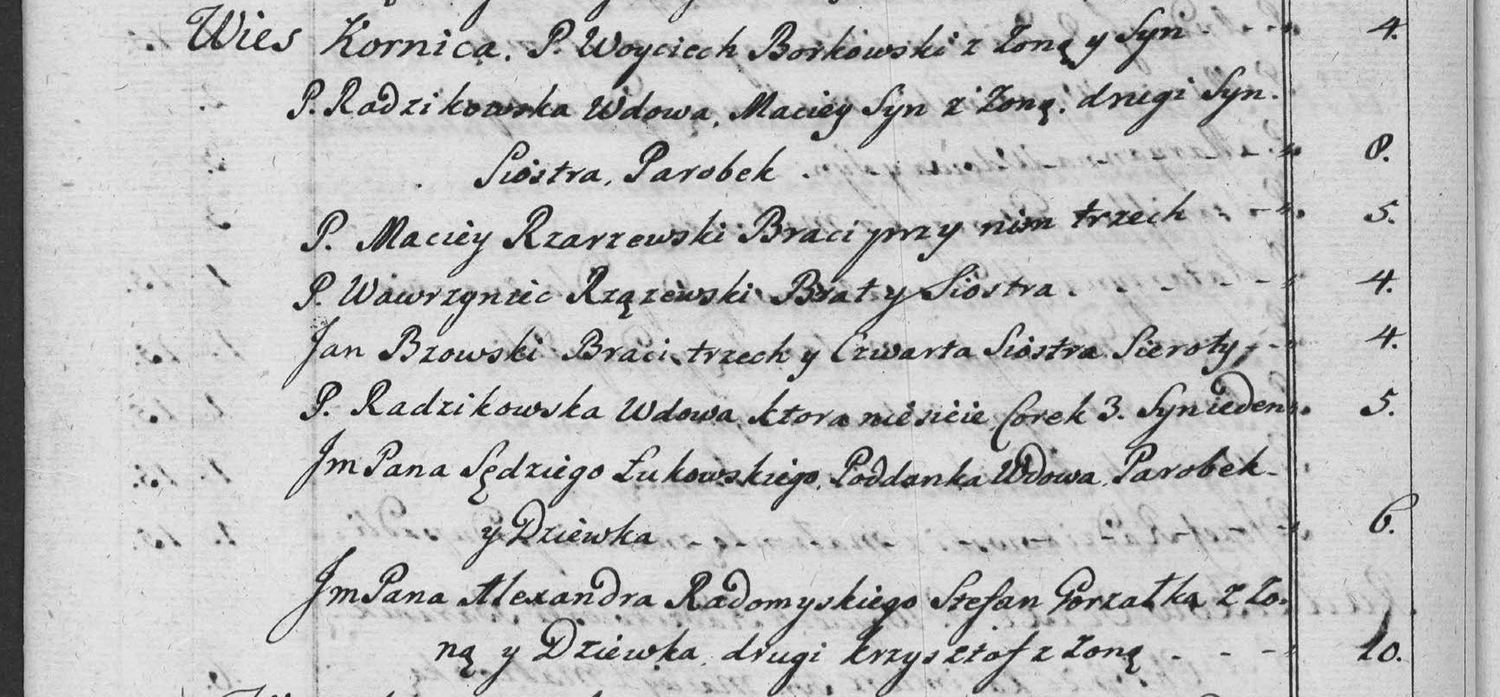 Wies Kornica. P. Woyciech Borkowski z Żoną y Syn 4.
P. Radzikowska Wdowa, Maciey Syn z Żoną, drugi Syn.
Siostra, Parobek 8.
P. Maciey Rzarzewski Braci przy nim trzech 5.
P. Wawrzyniec Rzązewski Brat y Siostra. 4.
Jan Bzowski Braci trzech y Czwarta Siostra Sieroty, 4.
P. Radzikowska Wdowa ktora nie sieie Corek 3. Syn ieden 5.
Jm Pana Sędziego Łukowskiego, Poddanka Wdowa Parobek
y Dziewka 6.
Jm Pana Alexandra Radomyskiego Stefan Gorzałka z Żo-
ną y Dziewka, drugi Krzysztof z Żoną 10.